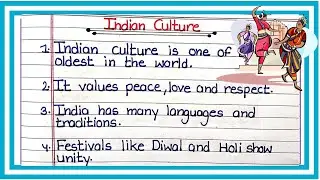 Indian Culture
1. Indian culture is one of
oldest in the world.
2. It values peace, love and respect.
3. India has many languages and
traditions.
4. Festivals like Diwal and Holi show
unity.